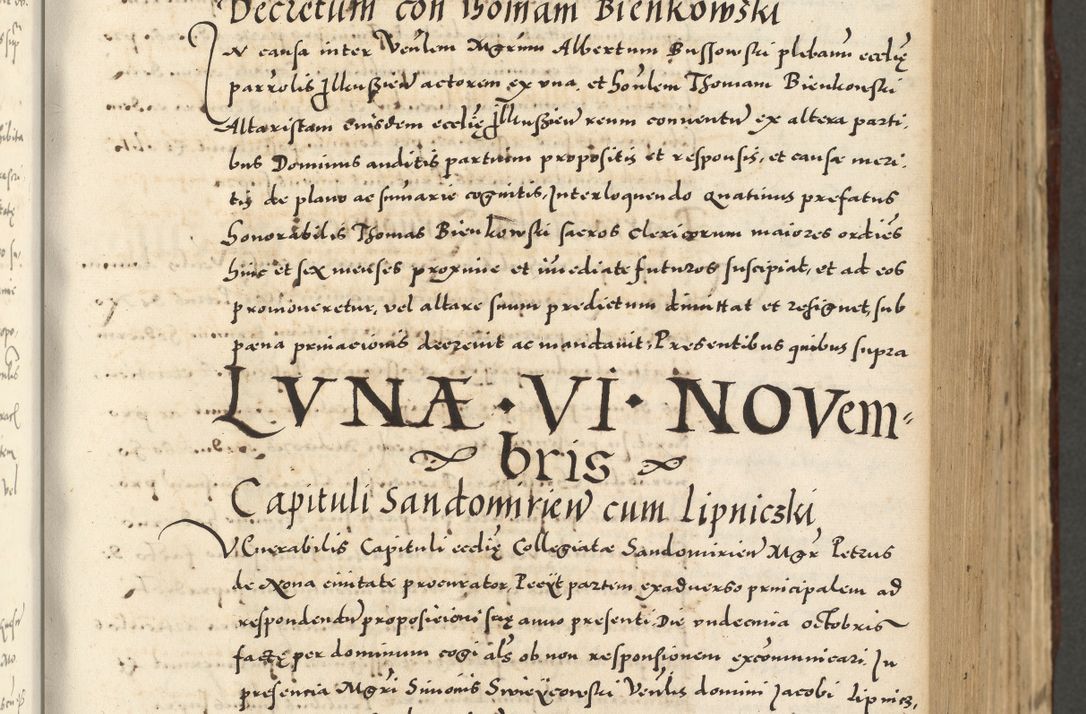 Decretum con Thomam Bienkowski
In causa inter Venlem Mgrum Albertum Bussowski plebanu ecclię
parrolis Jlkussien actorem ex vna, et honlem Thomam Bienkowski
Altaristam eiusdem ecclię Jlkussien reum conventu ex altera parti,
bus Dominus auditis partium propositis et responsis, et causæ meri,
tis de plano ac summarie cognitis, Interloquendo quatinus prefatus
honorabilis Thomas Bienkowski sacros clericorum maiores ordies
hinc et sex menses proxime et imediate futuros suscipiat, et ad eos
promoveretur, vel altare suum predictum dimittat et resignet, sub
pæna privacionis decrevit ac mandavit, Presentibus quibus supra
LVNÆ · VI · NOVem-
bris
Capituli Sandomirien cum Lipniczki
Venerabilis Capituli ecclię Collegiatæ Sandomirien Mgr Petrus
de Xona civitate procurator, Peeyt partem exadverso principalem ad
respondendu proposicioni suę anno presenti, Die vndecima octobris
factę per dominum cogi als ob non responsionem excomunicari. In
presencia Mgri Simonis Swieycowski Venlis domini Jacobi Lipnicz,